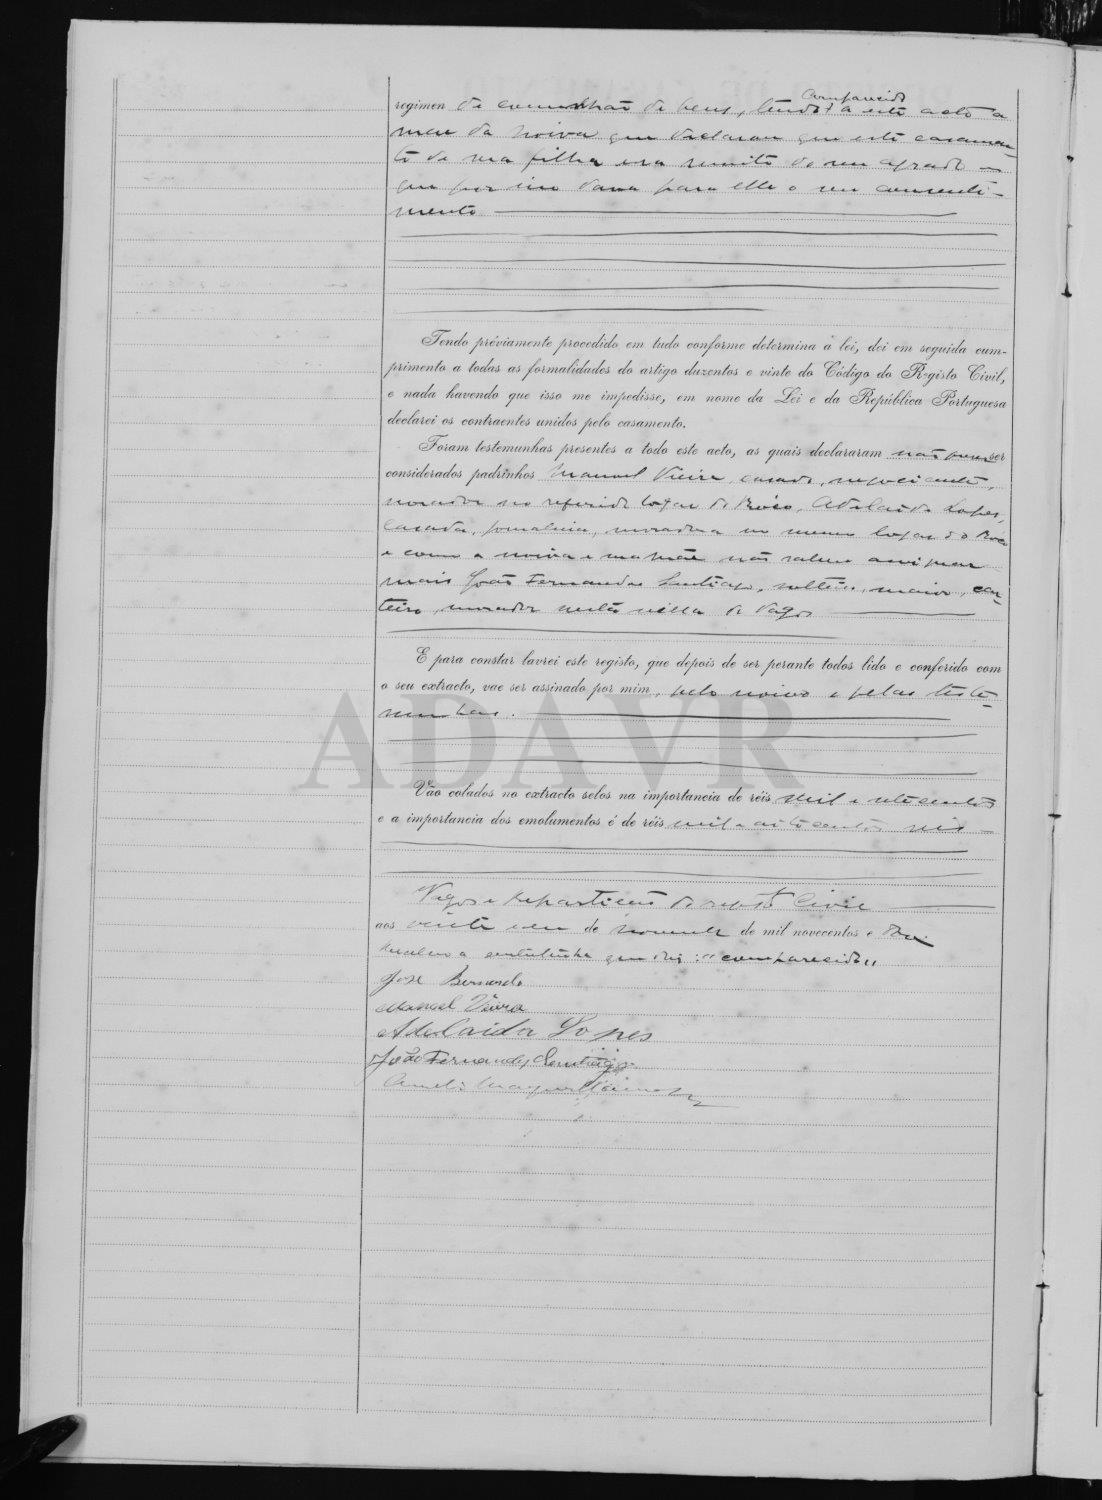 comparecido
regimen de comunhão de bens, tendo a este acto a
mãe da noiva que declarou que este casamen-
to de sua filha era muito do seu agrado e
que por isso dava para elle o seu consenti-
mento
Tendo préviamente procedido em tudo conforme determina a lei, dei em seguida cum-
primento a todas as formalidades do artigo duzentos e vinte do Código do Registo Civil,
e nada havendo que isso me impedisse, em nome da Lei e da República Portuguesa
declarei os contraentes unidos pelo casamento.
Foram testemunhas presentes a todo este acto, as quais declararam não ser
considerados padrinhos Manuel Vieira, casado, negociante,
morador no referido logar de Adelaide Lopes,
casada, jornaleira, moradora no mesmo logar do
e como a noiva e sua mãe não sabem assignar
mais João Fernandes Santiago, solteiro, maior, car-
teiro, morador nesta villa de Vagos
E para constar lavrei este registo, que depois de ser perante todos lido e conferido com
o seu extracto, vae ser assinado por mim, pelo noivo e pelas teste-
munhas.
ADAVR
Vão colados no extracto selos na importancia de réis mil e setecentos
e a importancia dos emolumentos é de réis mil e oitocentos réis
Vagos e Repartição do registo Civil
aos vinte e um de novembro de mil novecentos e
Resalvo a entrelinha que diz: "comparecido"
José Bernardo
Manuel Vieira
Adelaida Lopes
João Fernandes Santiago